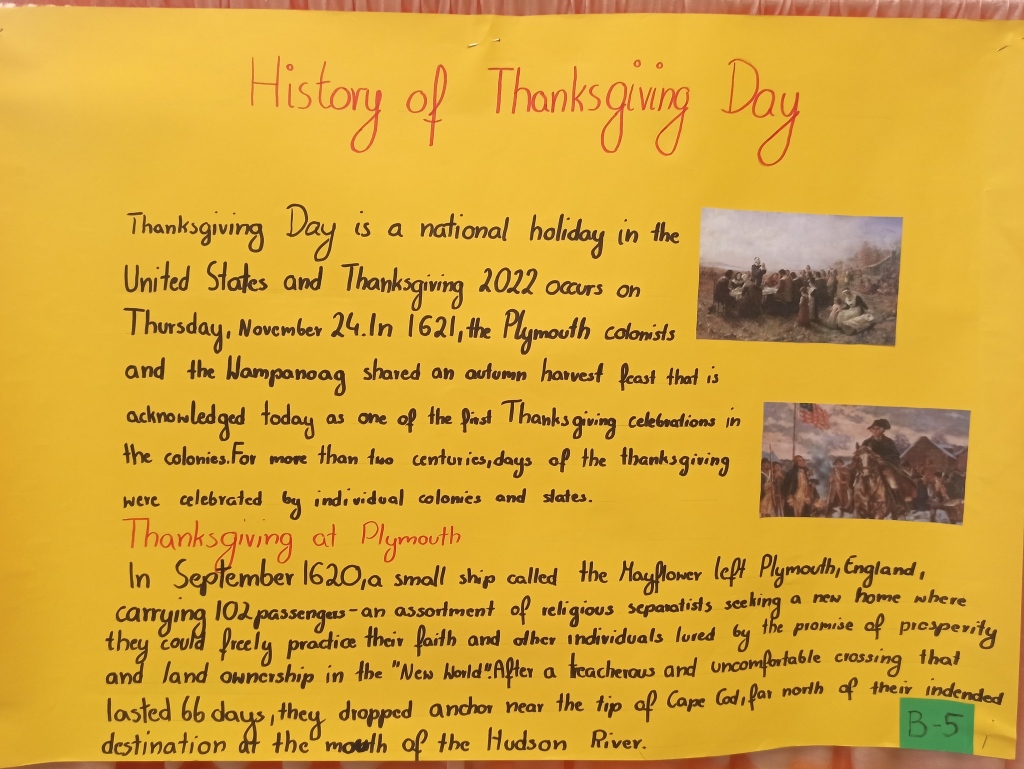 History of Thanksgiving Day
Thanksgiving Day is a national holiday in the
United States and Thanksgiving 2022 occurs on
Thursday, November 24.In 1621,the Plymouth colonists
and the Wampanoag shared an autumn harvest feast that is
acknowledged today as one of the first Thanksgiving celebrations in
the colonies.For more than two centuries,days of the thanksgiving
were celebrated by individual colonies and states.
Thanksgiving at Plymouth
In September 1620,a small ship called the Mayflower left Plymouth,England,
carrying 102 passengers-an assortment of religious separatists seeking a new home where
they could freely practice their faith and other individuals lured by the promise of prosperity
and land ownership in the "New World".After a treacherous and uncomfortable crossing that
lasted 66 days,they dropped anchor near the tip of Cape Cod,far north of their indended
destination at the mouth of the Hudson River.
B-5